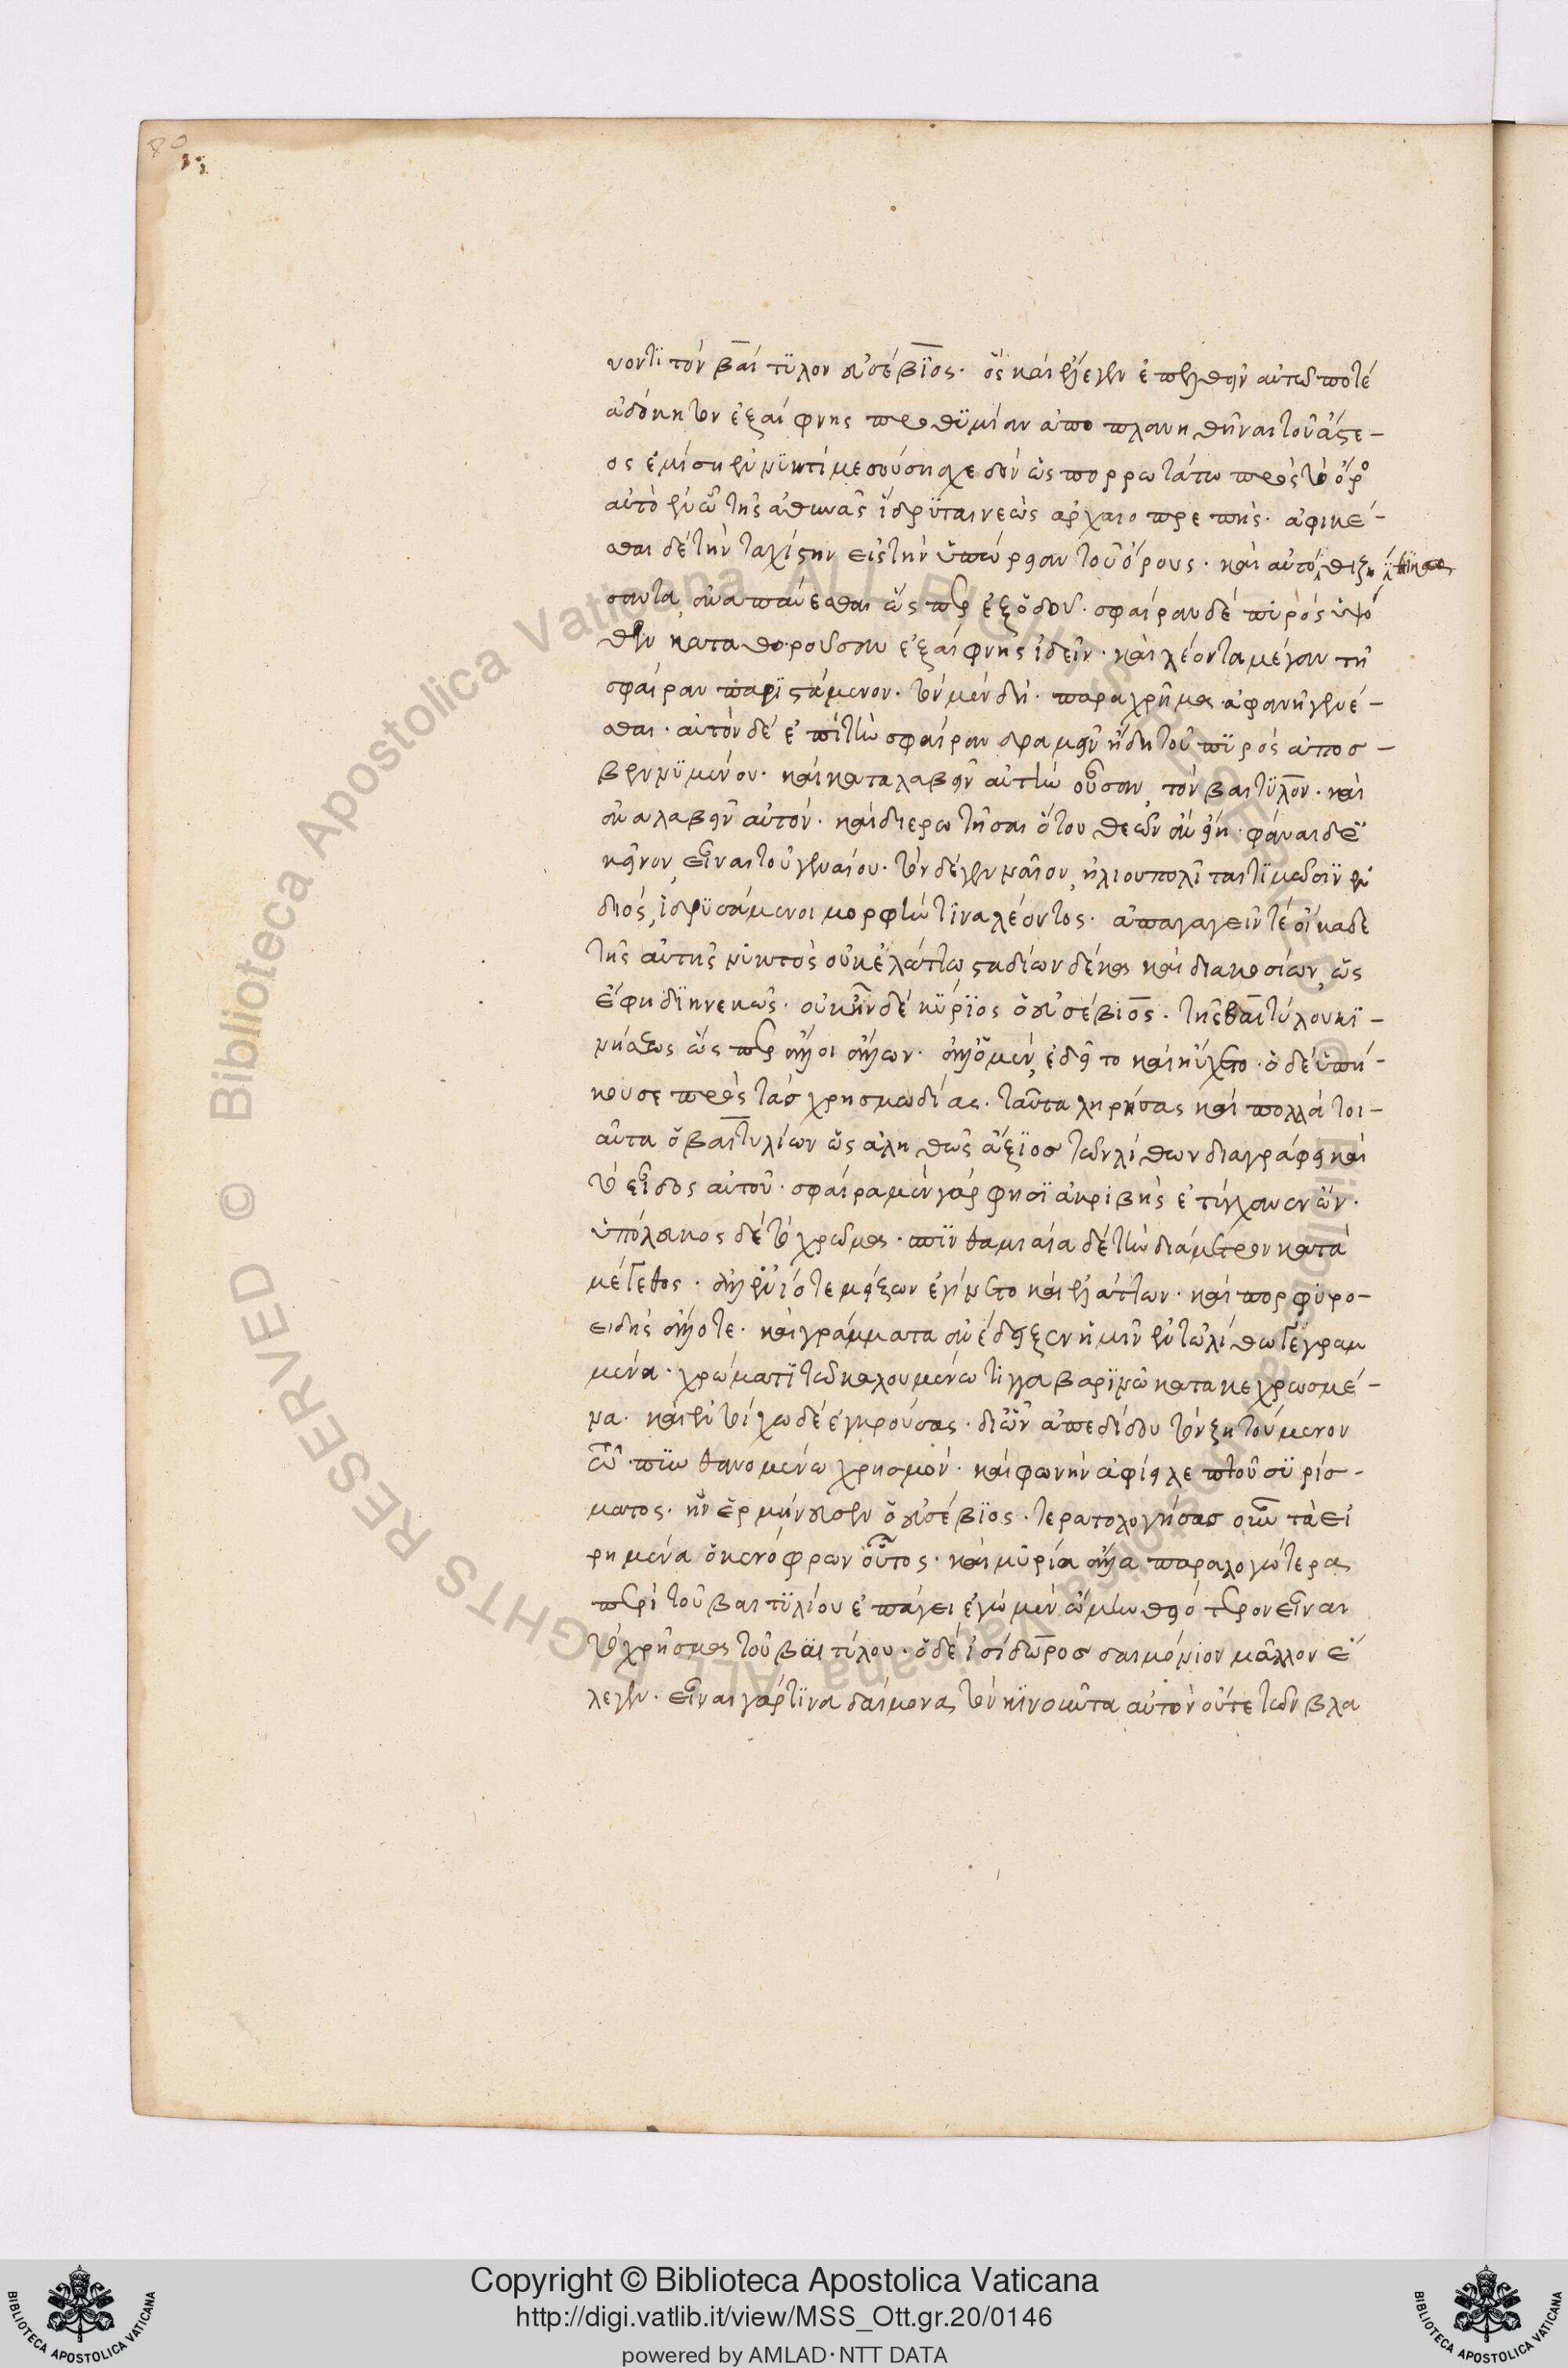 νοντϊ τὸν βαίτϋλον εὐσέβϊος· ὃς καὶ ἔλεγεν ἐπελθεῖν αὐτῷ ποτέ
ἀδόκητον ἐξαίφνης προθϋμίαν ἀποπλανηθῆναι τοῦ ἄστε-
ος ἐμίσης ἐν νϋκτὶ μεσούσῃ σχεδὸν ὡς πορρωτάτω πρὸς τὸ ὄρο
αὐτὸ ἐν ᾧ τῆς ἀθηνᾶς ἵδρϋται νεὼς ἀρχαιοπρεπής· ἀφικέ-
σθαι δὲ τὴν ταχίστην εἰς τὴν ὑπώρειαν τοῦ ὄρους· καὶ αὐτό
σαντα ἀναπαύεσθαι ὥσπερ ἐξ ὁδοῦ· σφαῖραν δὲ πϋρὸς ὑψό
θεν καταθοροῦσαν ἐξαίφνης ἰδεῖν· καὶ λέοντα μέγαν τῇ
σφαίραν παρϊστάμενον· τὸν μὲν δὴ· παραχρῆμα ἀφανῆ γενέ-
σθαι· αὐτὸν δὲ ἐπὶ τὴν σφαίραν δραμεῖν ἤδη τοῦ πϋρὸς ἀποσ-
βεννϋμένου· καὶ καταλαβεῖν αὐτὴν οὖσαν, τὸν βαιτϋλον· καὶ
ἀναλαβεῖν αὐτόν· καὶ διερωτῆσαι ὅτου θεῶν ἂν εἴη· φάναι δὲ ἐ
κεῖνον, εἶναι τοῦ γενναίου· τὸν δὲ γενναῖον, ἡλιουπολῖται τϊμῶσϊν ἐν
διός, ἱδρϋσάμενοι μορφήν τϊνα λέοντος· ἀπαγαγεῖν τὲ οἴκαδε
τῆς αὐτῆς νϋκτὸς οὐκ ἐλάττω σταδίων δέκα καὶ διακοσίων, ὡς
ἔφη δϊηνεκῶς· οὐκ ἦν δὲ κύρϊος ὁ εὐσέβιος· τῆς βαιτύλου κϊ-
νήσεως ὥσπερ ἄλλοι ἄλλων· ἀλλ' ὁ μὲν, ἐδεῖτο καὶ ηὔχετο· ὁ δὲ ὑπή-
κουσε πρὸς τὰς χρησμωδίας· ταῦτα ληρήσας καὶ πολλὰ τοι-
αῦτα ὁ βαιτυλίων ὡς ἀληθῶς ἄξϊος τῶν λίθων διαγράφει καὶ
τὸ εἶδος αὐτοῦ· σφαῖρα μὲν γάρ φησϊ ἀκριβὴς ἐτύγχανεν ὢν·
ὑπόλευκος δὲ τὸ χρῶμα· σπϊθαμιαία δὲ τὴν διάμετρον κατὰ
μέγεθος· ἀλλ' ἐνίοτε μείζων ἐγίνετο καὶ ἐλάττων· καὶ πορφϋρο-
ειδὴς ἄλλοτε· καὶ γράμματα ἀνέδειξεν ἡμῖν ἐν τῷ λίθω γεγραμ
μένα· χρώματϊ τῶ καλουμένω τιγγαβαρϊνῶ κατακεχρωσμέ-
να· καὶ ἐν τοίχω δὲ ἐγκρούσας· δι ὧν ἀπεδίδου τὸν ζητούμενον
τῶ πϋνθανομένω χρησμόν· καὶ φωνὴν ἀφίει λεπτοῦ σϋρίσ-
ματος· ἣν ἑρμήνευσεν ὁ εὐσέβϊος· τερατολογήσας οὖν τὰ εἰ
ρημένα ὁ κενόφρων οὗτος· καὶ μϋρία ἄλλα παραλογώτερα
περὶ τοῦ βαιτϋλίου ἐπάγει ἐγὼ μὲν ᾤμην θειότερον εἶναι
τὸ χρῆσμα τοῦ βαιτύλου· ὁ δὲ ἰσίδωρος δαιμόνιον μᾶλλον ἔ
λεγεν· εἶναι γάρ τϊνα δαίμονας τὸν κϊνοῦντα αὐτὸν οὔτε τῶν βλα
Copyright © Biblioteca Apostolica Vaticana
http://digi.vatlib.it/view/MSS_Ott.gr.20/0146
powered by AMLAD·NTT DATA